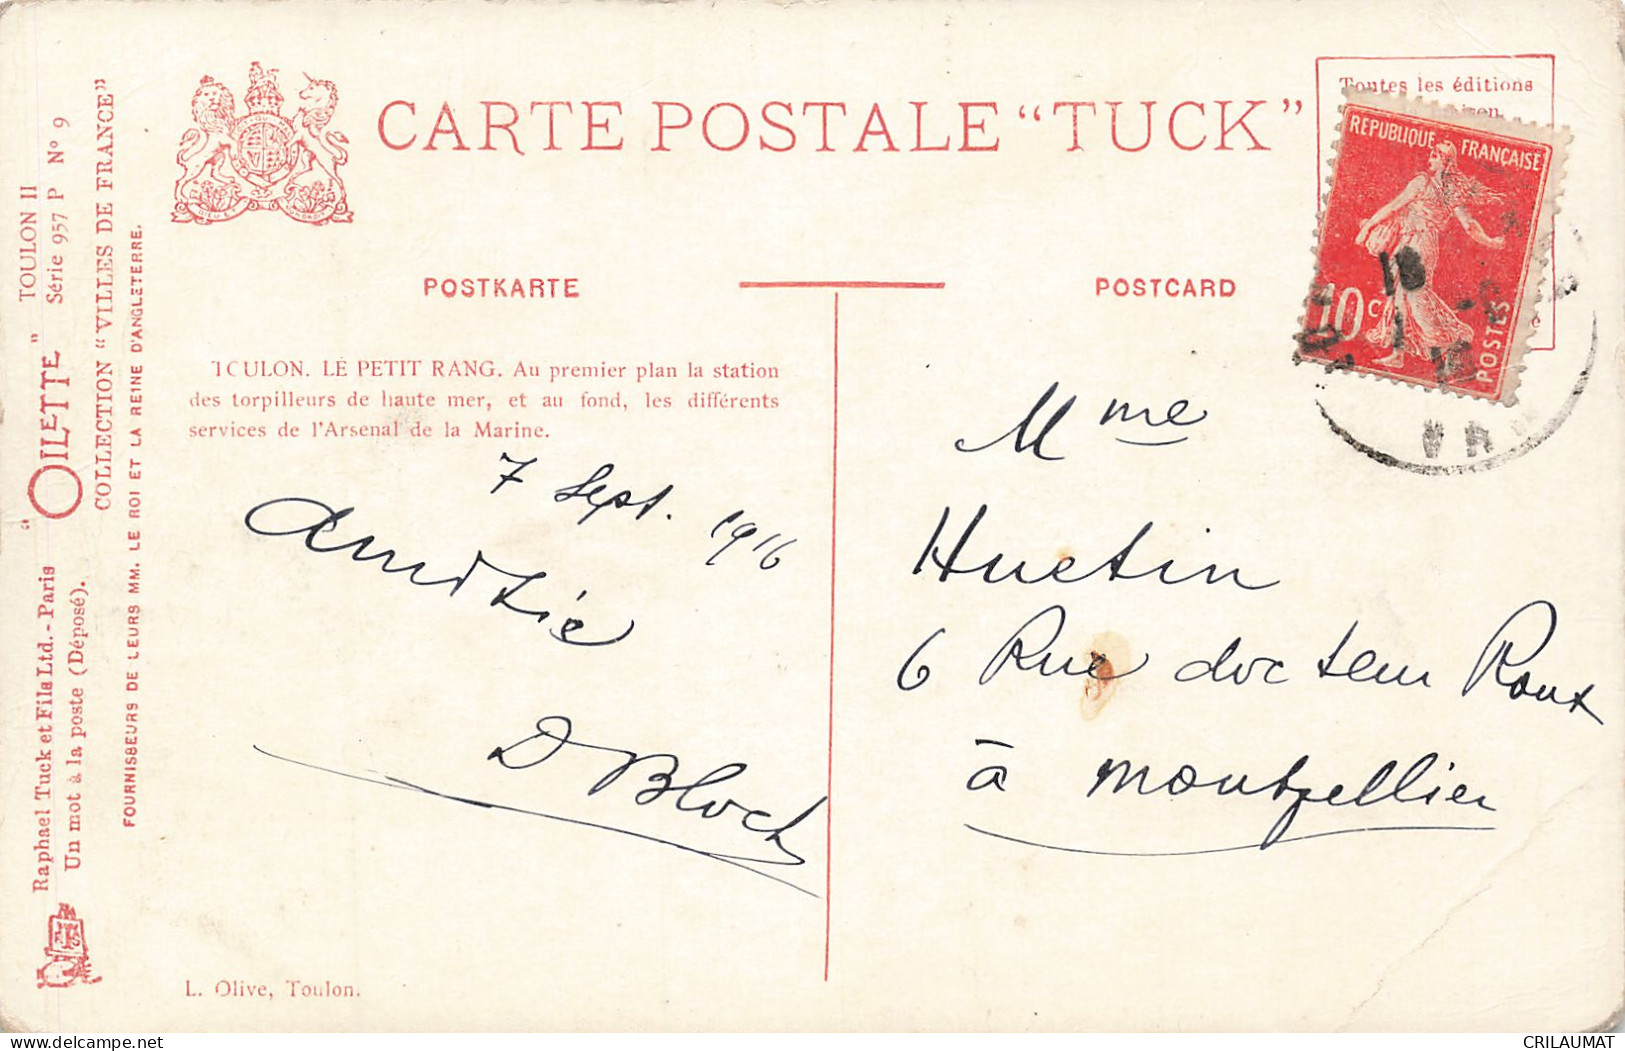 CARTE POSTALE "TUCK"
Toutes les éditions
REPUBLIQUE FRANÇAISE
10 c
POSTES
POSTKARTE
POSTCARD
TOULON II
Série 957 P N° 9
"OILETTE"
COLLECTION "VILLES DE FRANCE"
Raphael Tuck et Fils Ltd. - Paris
Un mot à la poste (Déposé).
FOURNISSEURS DE LEURS MM. LE ROI ET LA REINE D'ANGLETERRE.
TOULON. LE PETIT RANG. Au premier plan la station
des torpilleurs de haute mer, et au fond, les différents
services de l'Arsenal de la Marine.
7 Sept. 1916
Amitié
D Bloch
Mme
Huetin
6 Rue docteur Roux
à Montpellier
VAR
L. Olive, Toulon.
delcampe.net
CRILAUMAT